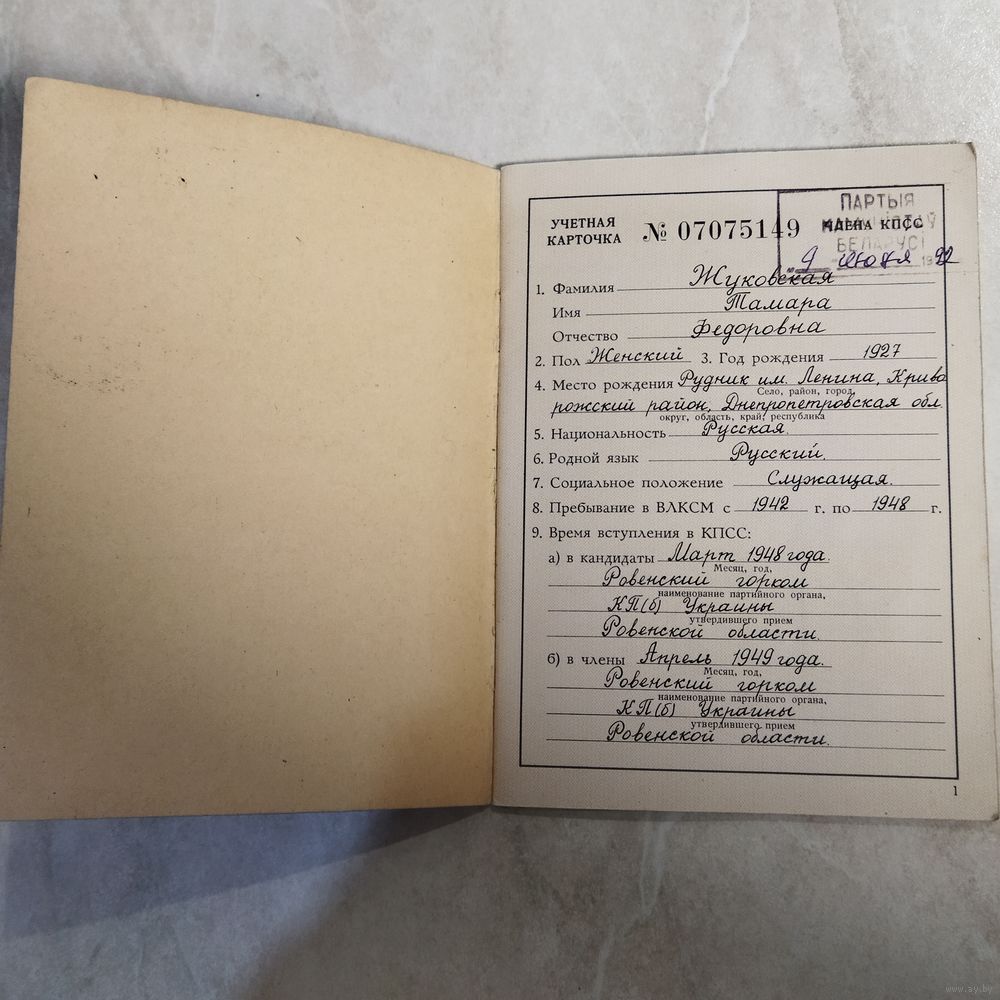 УЧЕТНАЯ
КАРТОЧКА № 07075149 ЧЛЕНА КПСС
ПАРТЫЯ
КАМУНІСТАЎ
БЕЛАРУСІ
9 июля 1992
1. Фамилия Жуковская
Имя Тамара
Отчество Федоровна
2. Пол Женский 3. Год рождения 1927
4. Место рождения Рудник им. Ленина, Криво
Село, район, город,
рожский район, Днепропетровская обл.
округ, область, край, республика
5. Национальность Русская.
6. Родной язык Русский.
7. Социальное положение Служащая.
8. Пребывание в ВЛКСМ с 1942 г. по 1948 г.
9. Время вступления в КПСС:
а) в кандидаты Март 1948 года.
Месяц, год,
Ровенский горком
наименование партийного органа,
КП(б) Украины
утвердившего прием
Ровенской области.
б) в члены Апрель 1949 года.
Месяц, год,
Ровенский горком
наименование партийного органа,
КП(б) Украины
утвердившего прием
Ровенской области.
1
www.ay.by